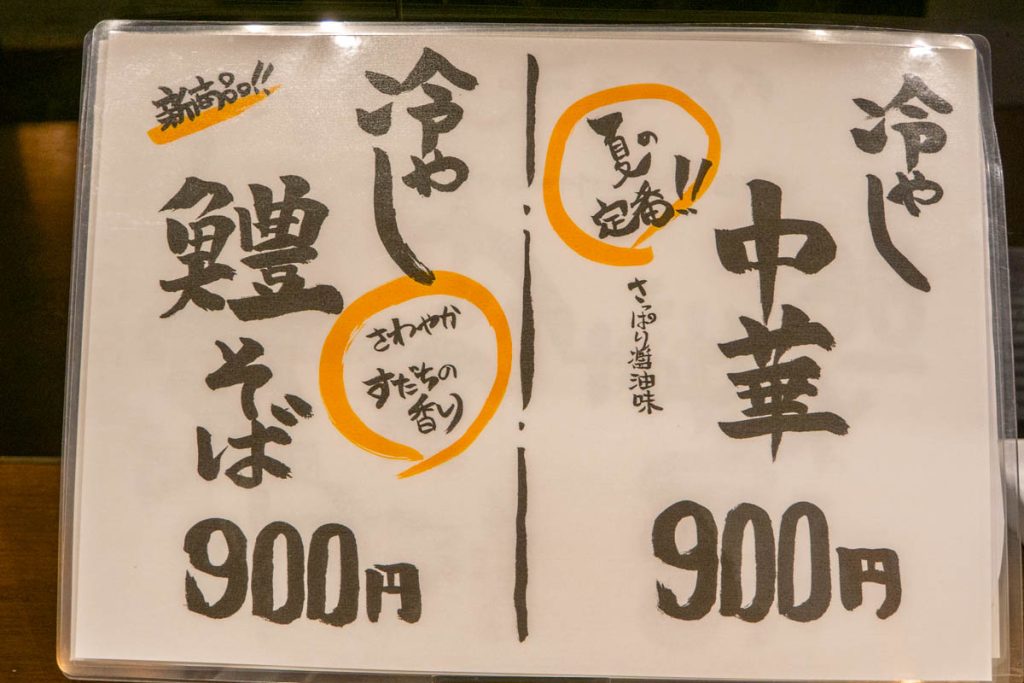 冷やし
中華
夏の
定番!!
さっぱり醤油味
900円
冷やし
鱧そば
新商品!!
さわやか
すだちの
香り
900円